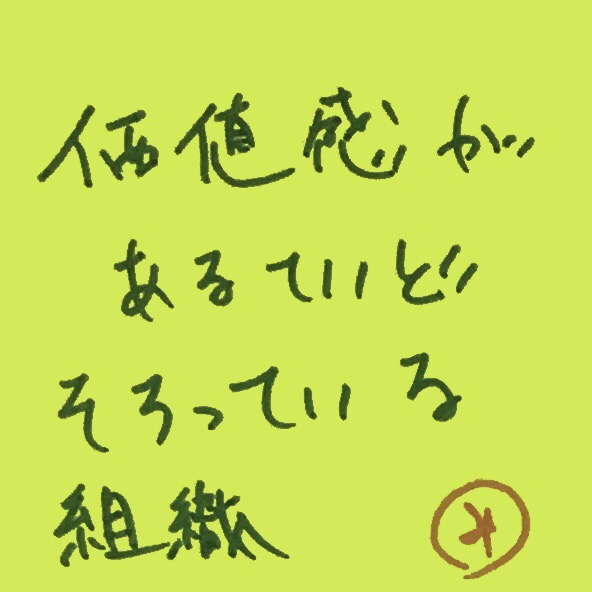 価値感が
あるていど
そろっている
組織